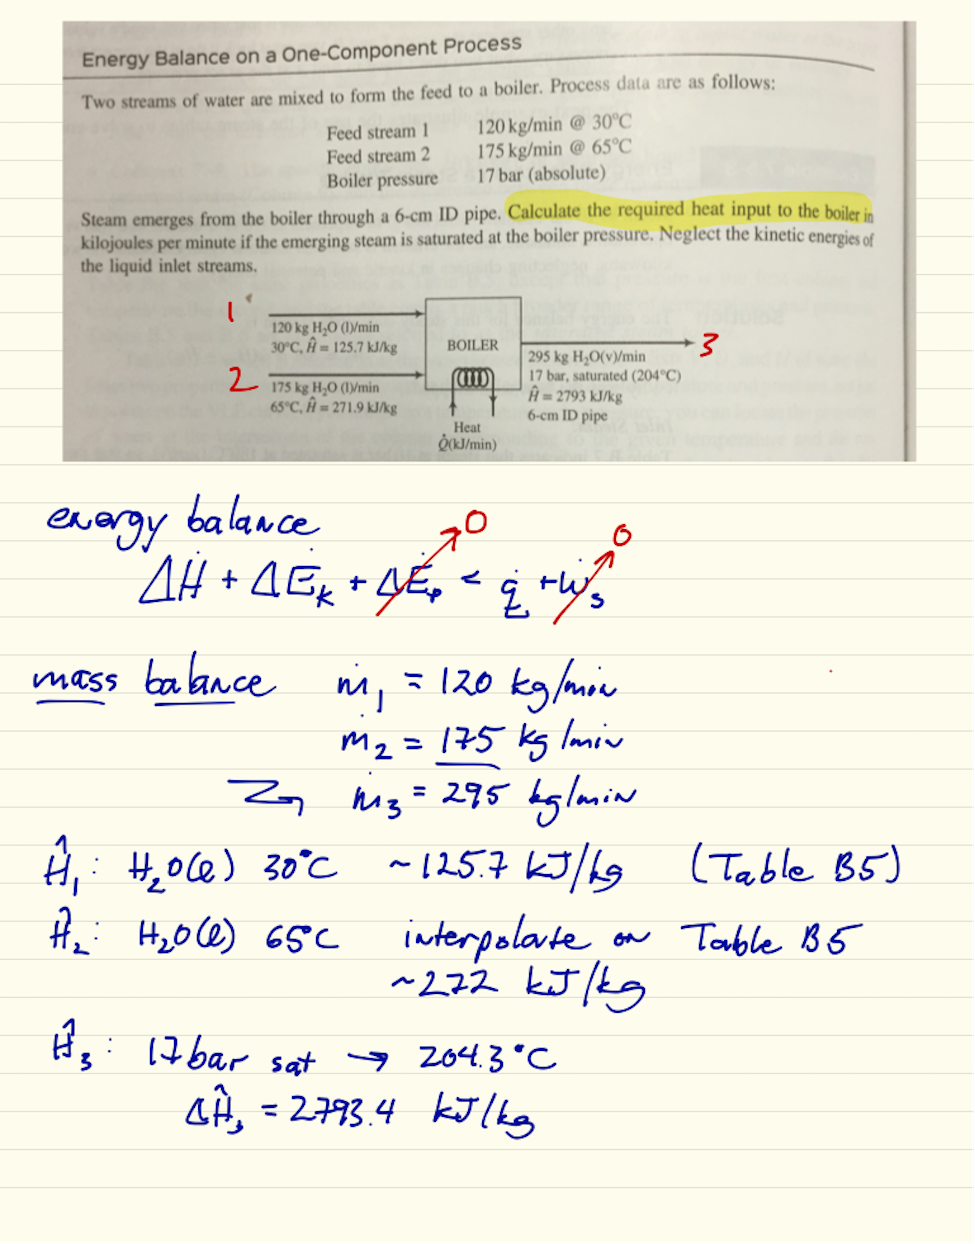 Energy Balance on a One-Component Process
Two streams of water are mixed to form the feed to a boiler. Process data are as follows:
Feed stream 1 120 kg/min @ 30°C
Feed stream 2 175 kg/min @ 65°C
Boiler pressure 17 bar (absolute)
Steam emerges from the boiler through a 6-cm ID pipe. Calculate the required heat input to the boiler in
kilojoules per minute if the emerging steam is saturated at the boiler pressure. Neglect the kinetic energies of
the liquid inlet streams.
1
120 kg H₂O (l)/min
30°C, Ĥ = 125.7 kJ/kg
2
175 kg H₂O (l)/min
65°C, Ĥ = 271.9 kJ/kg
BOILER
Heat
Q̇(kJ/min)
3
295 kg H₂O(v)/min
17 bar, saturated (204°C)
Ĥ = 2793 kJ/kg
6-cm ID pipe
energy balance
0 0
ΔḢ + ΔĖₖ + ΔĖₚ = q̇ + ẇₛ
mass balance ṁ₁ = 120 kg/min
ṁ₂ = 175 kg/min
ṁ₃ = 295 kg/min
Ĥ₁: H₂O(l) 30°C ~125.7 kJ/kg (Table B5)
Ĥ₂: H₂O(l) 65°C interpolate on Table B5
~272 kJ/kg
Ĥ₃: 17 bar sat → 204.3°C
ΔĤ₃ = 2793.4 kJ/kg